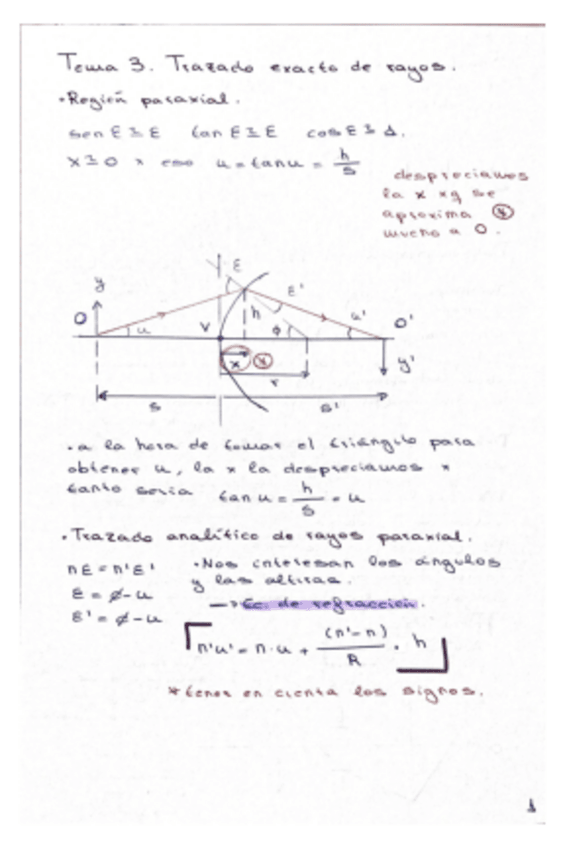 Tema 3. Trazado exacto de rayos.
·Región paraxial.
sen ε ≅ ε tan ε ≅ ε cos ε ≅ 1.
x ≅ 0 x eso u = tan u = h/s
despreciamos
la x xq se
aproxima *
mucho a 0.
y ε ε'
O u V h φ u' O'
x * y'
r
s s'
·a la hora de tomar el triángulo para
obtener u, la x la despreciamos x
tanto sería tan u = h/s = u
·Trazado analítico de rayos paraxial.
nε = n'ε' ·Nos interesan los ángulos
y las alturas.
ε = φ-u
→ Ec. de refracción.
ε' = φ-u
n'u' = n·u + (n'-n)/R · h
*tener en cuenta los signos.
1